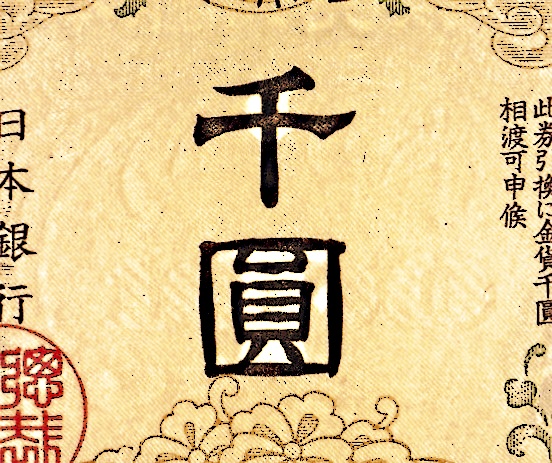 此券引換に金貨千圓
相渡可申候
千圓
日本銀行
總裁